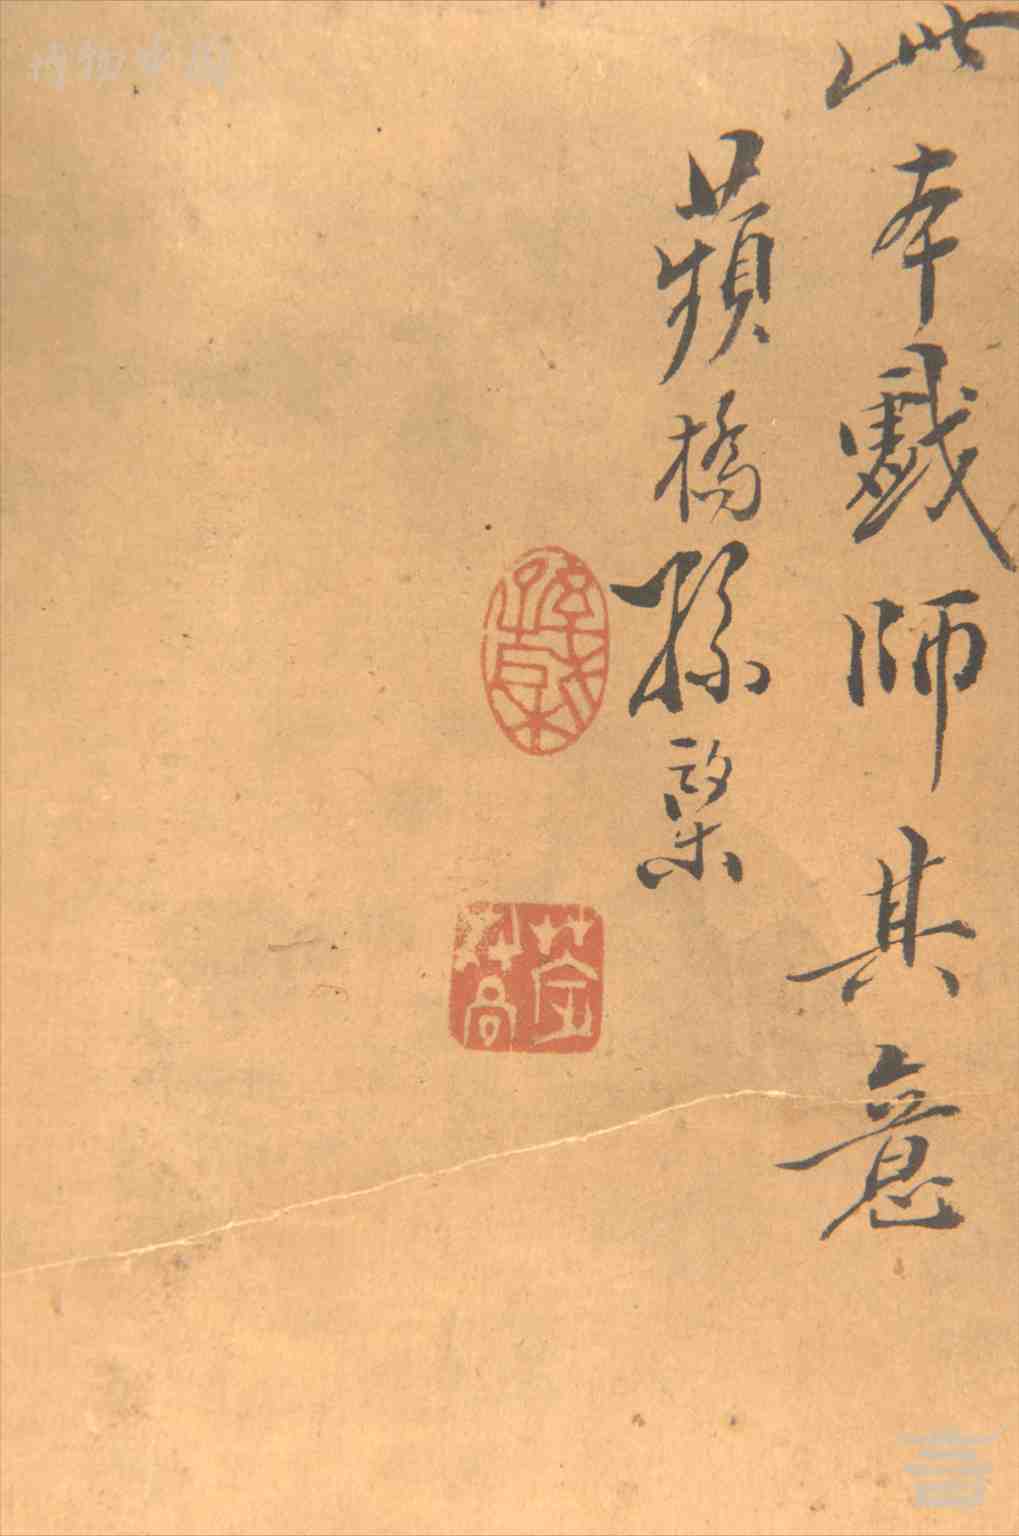 此本戲師其意
蘋橋孫棨
孫棨
博物中國